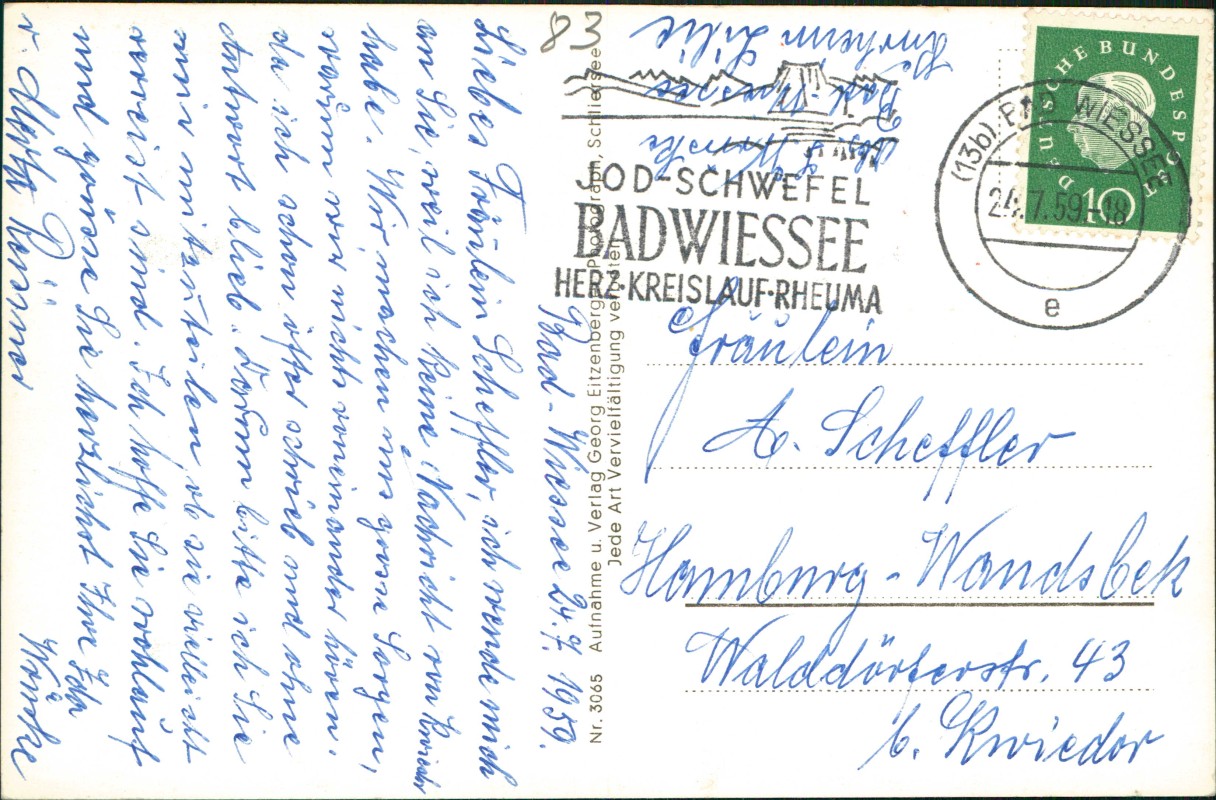 83
Bad-Wiessee 24.7.1959.
Liebes Fräulein Scheffler, ich wende mich
an Sie, weil ich keine Nachricht von Kwiedor
habe. Wir machen uns grosse Sorgen,
warum wir nichts voneinander hören.
da ich schon öfter schrieb und ohne
Antwort blieb. Darum bitte ich Sie
mir mitzuteilen ob sie vielleicht
verreist sind. Ich hoffe Sie wohlauf
und grüsse Sie herzlichst Ihre Ida
Nr. 3065 Aufnahme u. Verlag Georg Eitzenberger, Photograph, Schliersee
Jede Art Vervielfältigung verboten
Kurheim Lilie
Bad-Wiessee
JOD-SCHWEFEL
BAD WIESSEE
HERZ·KREISLAUF·RHEUMA
DEUTSCHE BUNDESPOST
10
(13b) BAD WIESSEE
24.7.59-18
e
Fräulein
A. Scheffler
Hamburg-Wandsbek
Walddörferstr. 43
b. Kwiedor